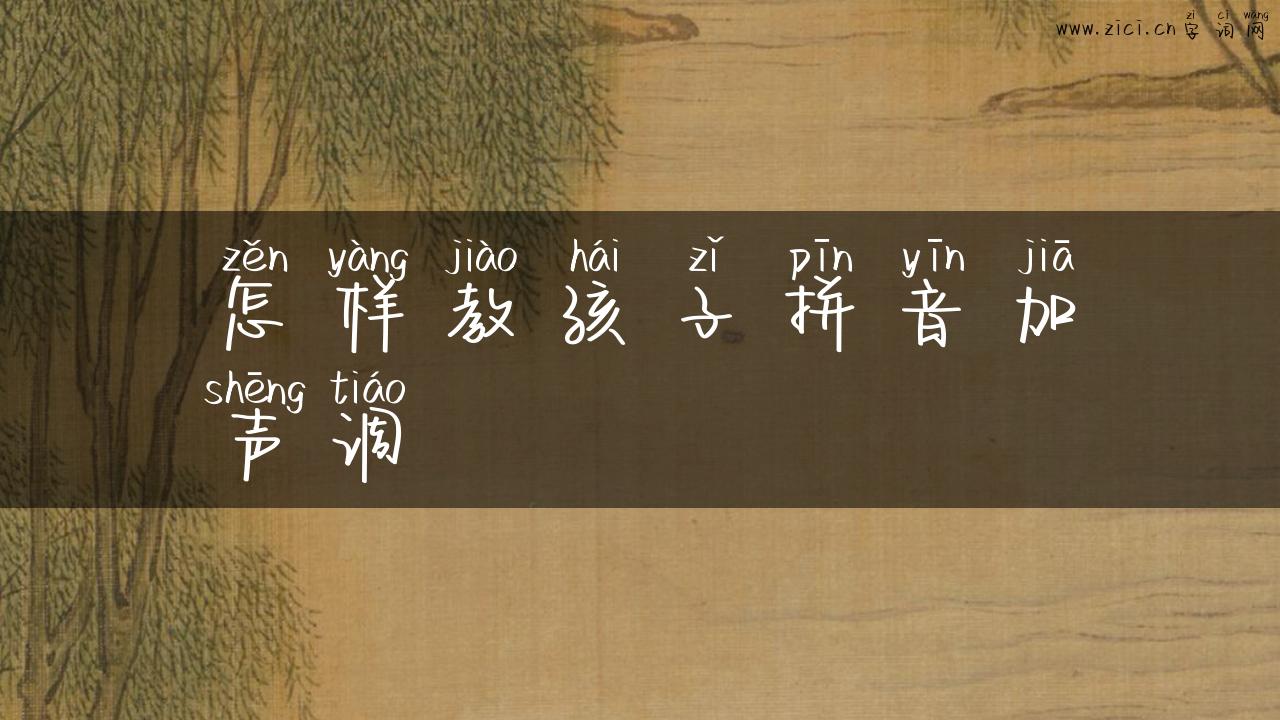 zì cí wǎng
www.zici.cn 字词网
zěn yàng jiào hái zǐ pīn yīn jiā
怎样教孩子拼音加
shēng tiáo
声调